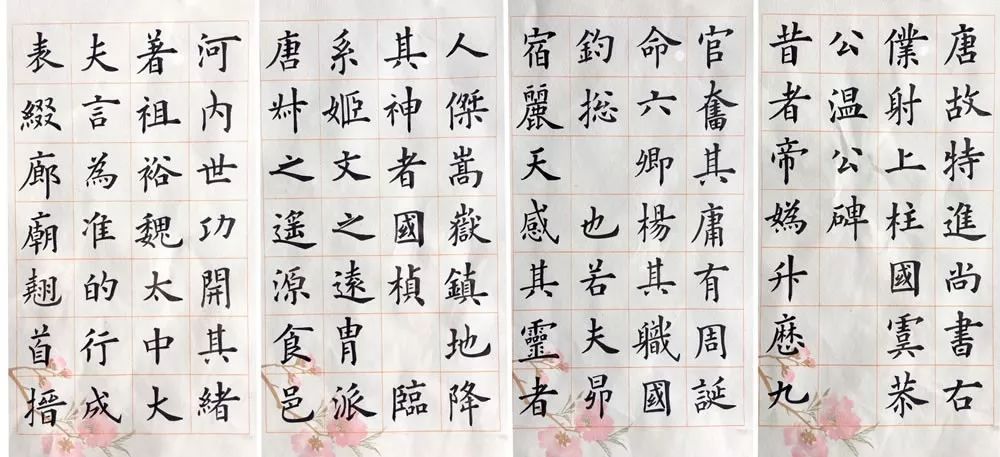 唐故特進尚書右
僕射上柱國虞恭
公温公碑
昔者帝媯升厯九
官奮其庸有周誕
命六卿楊其職國
鈞揔 也若夫昴
宿麗天感其靈者
人傑嵩嶽鎮地降
其神者國楨 臨
系姬文之遠胄派
唐叔之遥源食邑
河内世功開其緒
著祖裕魏太中大
夫言為准的行成
表綴廊廟翹首搢